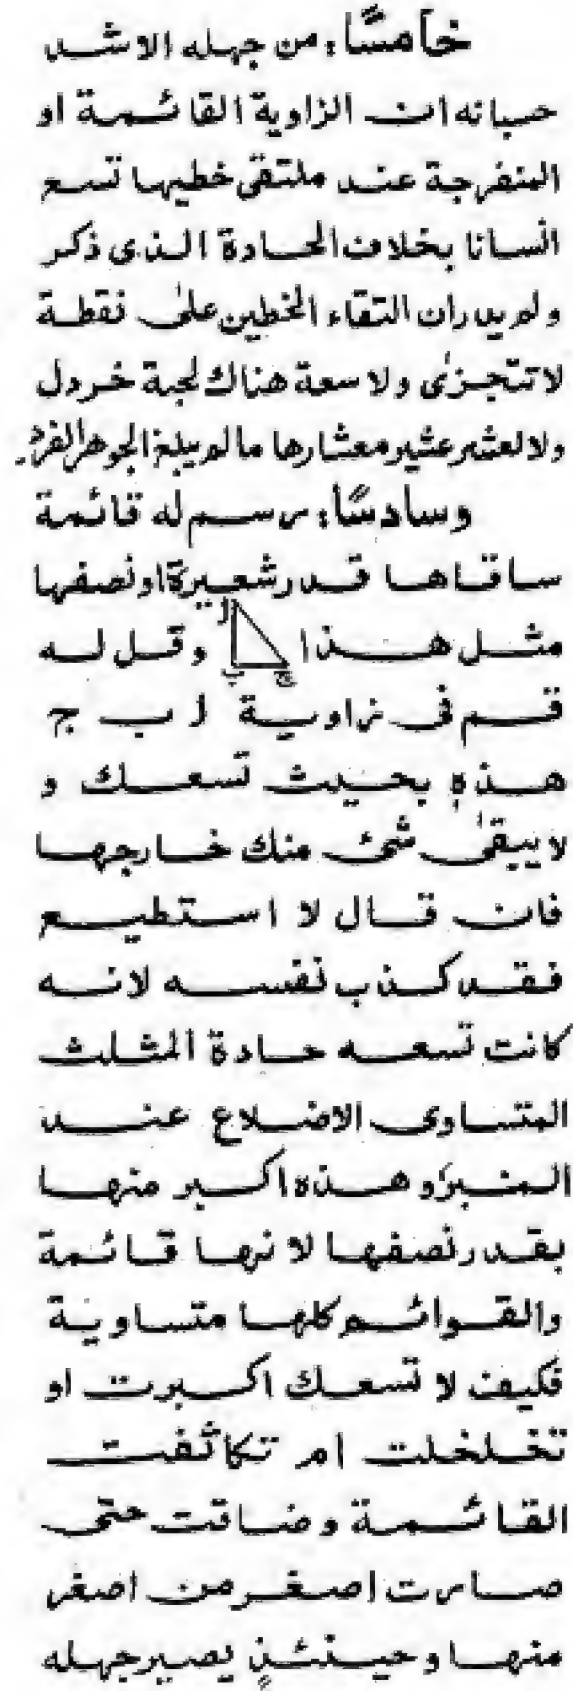 خامسًا، من جهله الاشد
حسبانه ان الزاوية القائمة او
المنفرجة عند ملتقى خطيها تسع
انسانا بخلاف الحادة الذى ذكر
ولم يدر ان التقاء الخطين على نقطة
لا تتجزى ولا سعة هناك لحبة خردل
ولا لعشر عشير معشارها ما لم يبلغ الجوهر الفرد.
وسادسًا، رسم له قائمة
ساقاها قدر شعيرة او نصفها
مثل هذا ا ب ج وقل له
قم فى زاوية ا ب ج
هذه بحيث تسعك و
لا يبقى شئ منك خارجها
فان قال لا استطيع
فقد كذب نفسه لانه
كانت تسعه حادة المثلث
المتساوى الاضلاع عند
المنبر و هذه اكبر منها
بقدر نصفها لانها قائمة
والقوائم كلها متساوية
فكيف لا تسعك اكبرت او
تخلخلت ام تكاثفت
القائمة وضاقت حتى
صارت اصغر من اصغر
منها وحينئذٍ يصير جهله